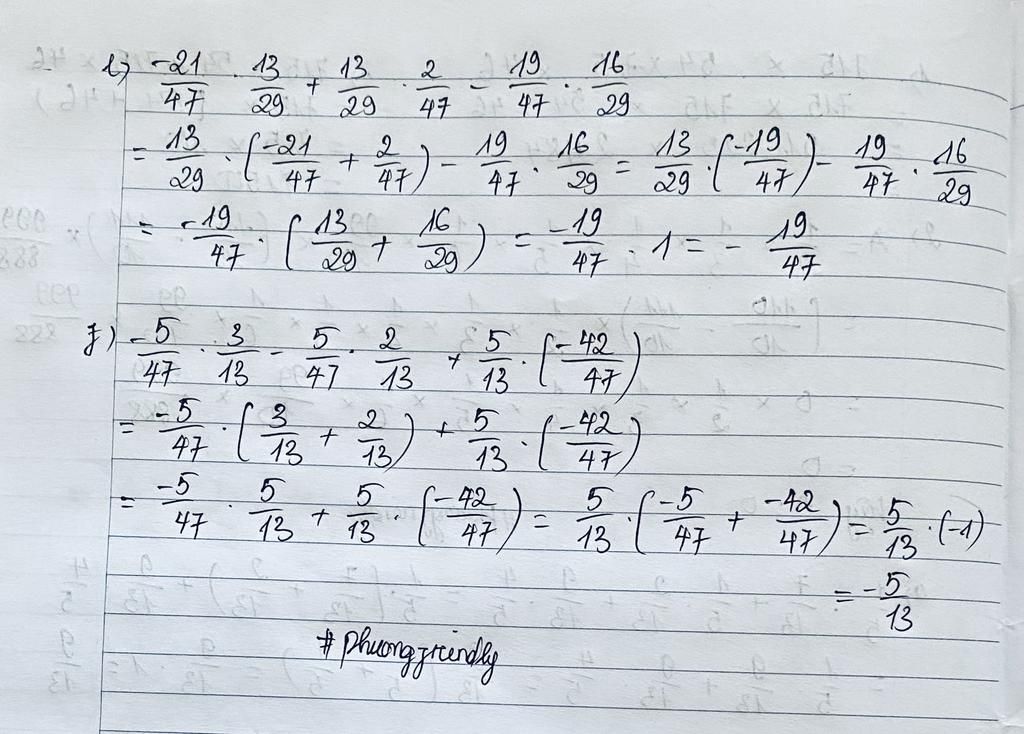 e) -21/47 · 13/29 + 13/29 · 2/47 - 19/47 · 16/29
= 13/29 · (-21/47 + 2/47) - 19/47 · 16/29 = 13/29 · (-19/47) - 19/47 · 16/29
= -19/47 · (13/29 + 16/29) = -19/47 · 1 = - 19/47
f) -5/47 · 3/13 - 5/47 · 2/13 + 5/13 · (-42/47)
= -5/47 · (3/13 + 2/13) + 5/13 · (-42/47)
= -5/47 · 5/13 + 5/13 · (-42/47) = 5/13 · (-5/47 + -42/47) = 5/13 · (-1)
= -5/13
# phuongfriendly